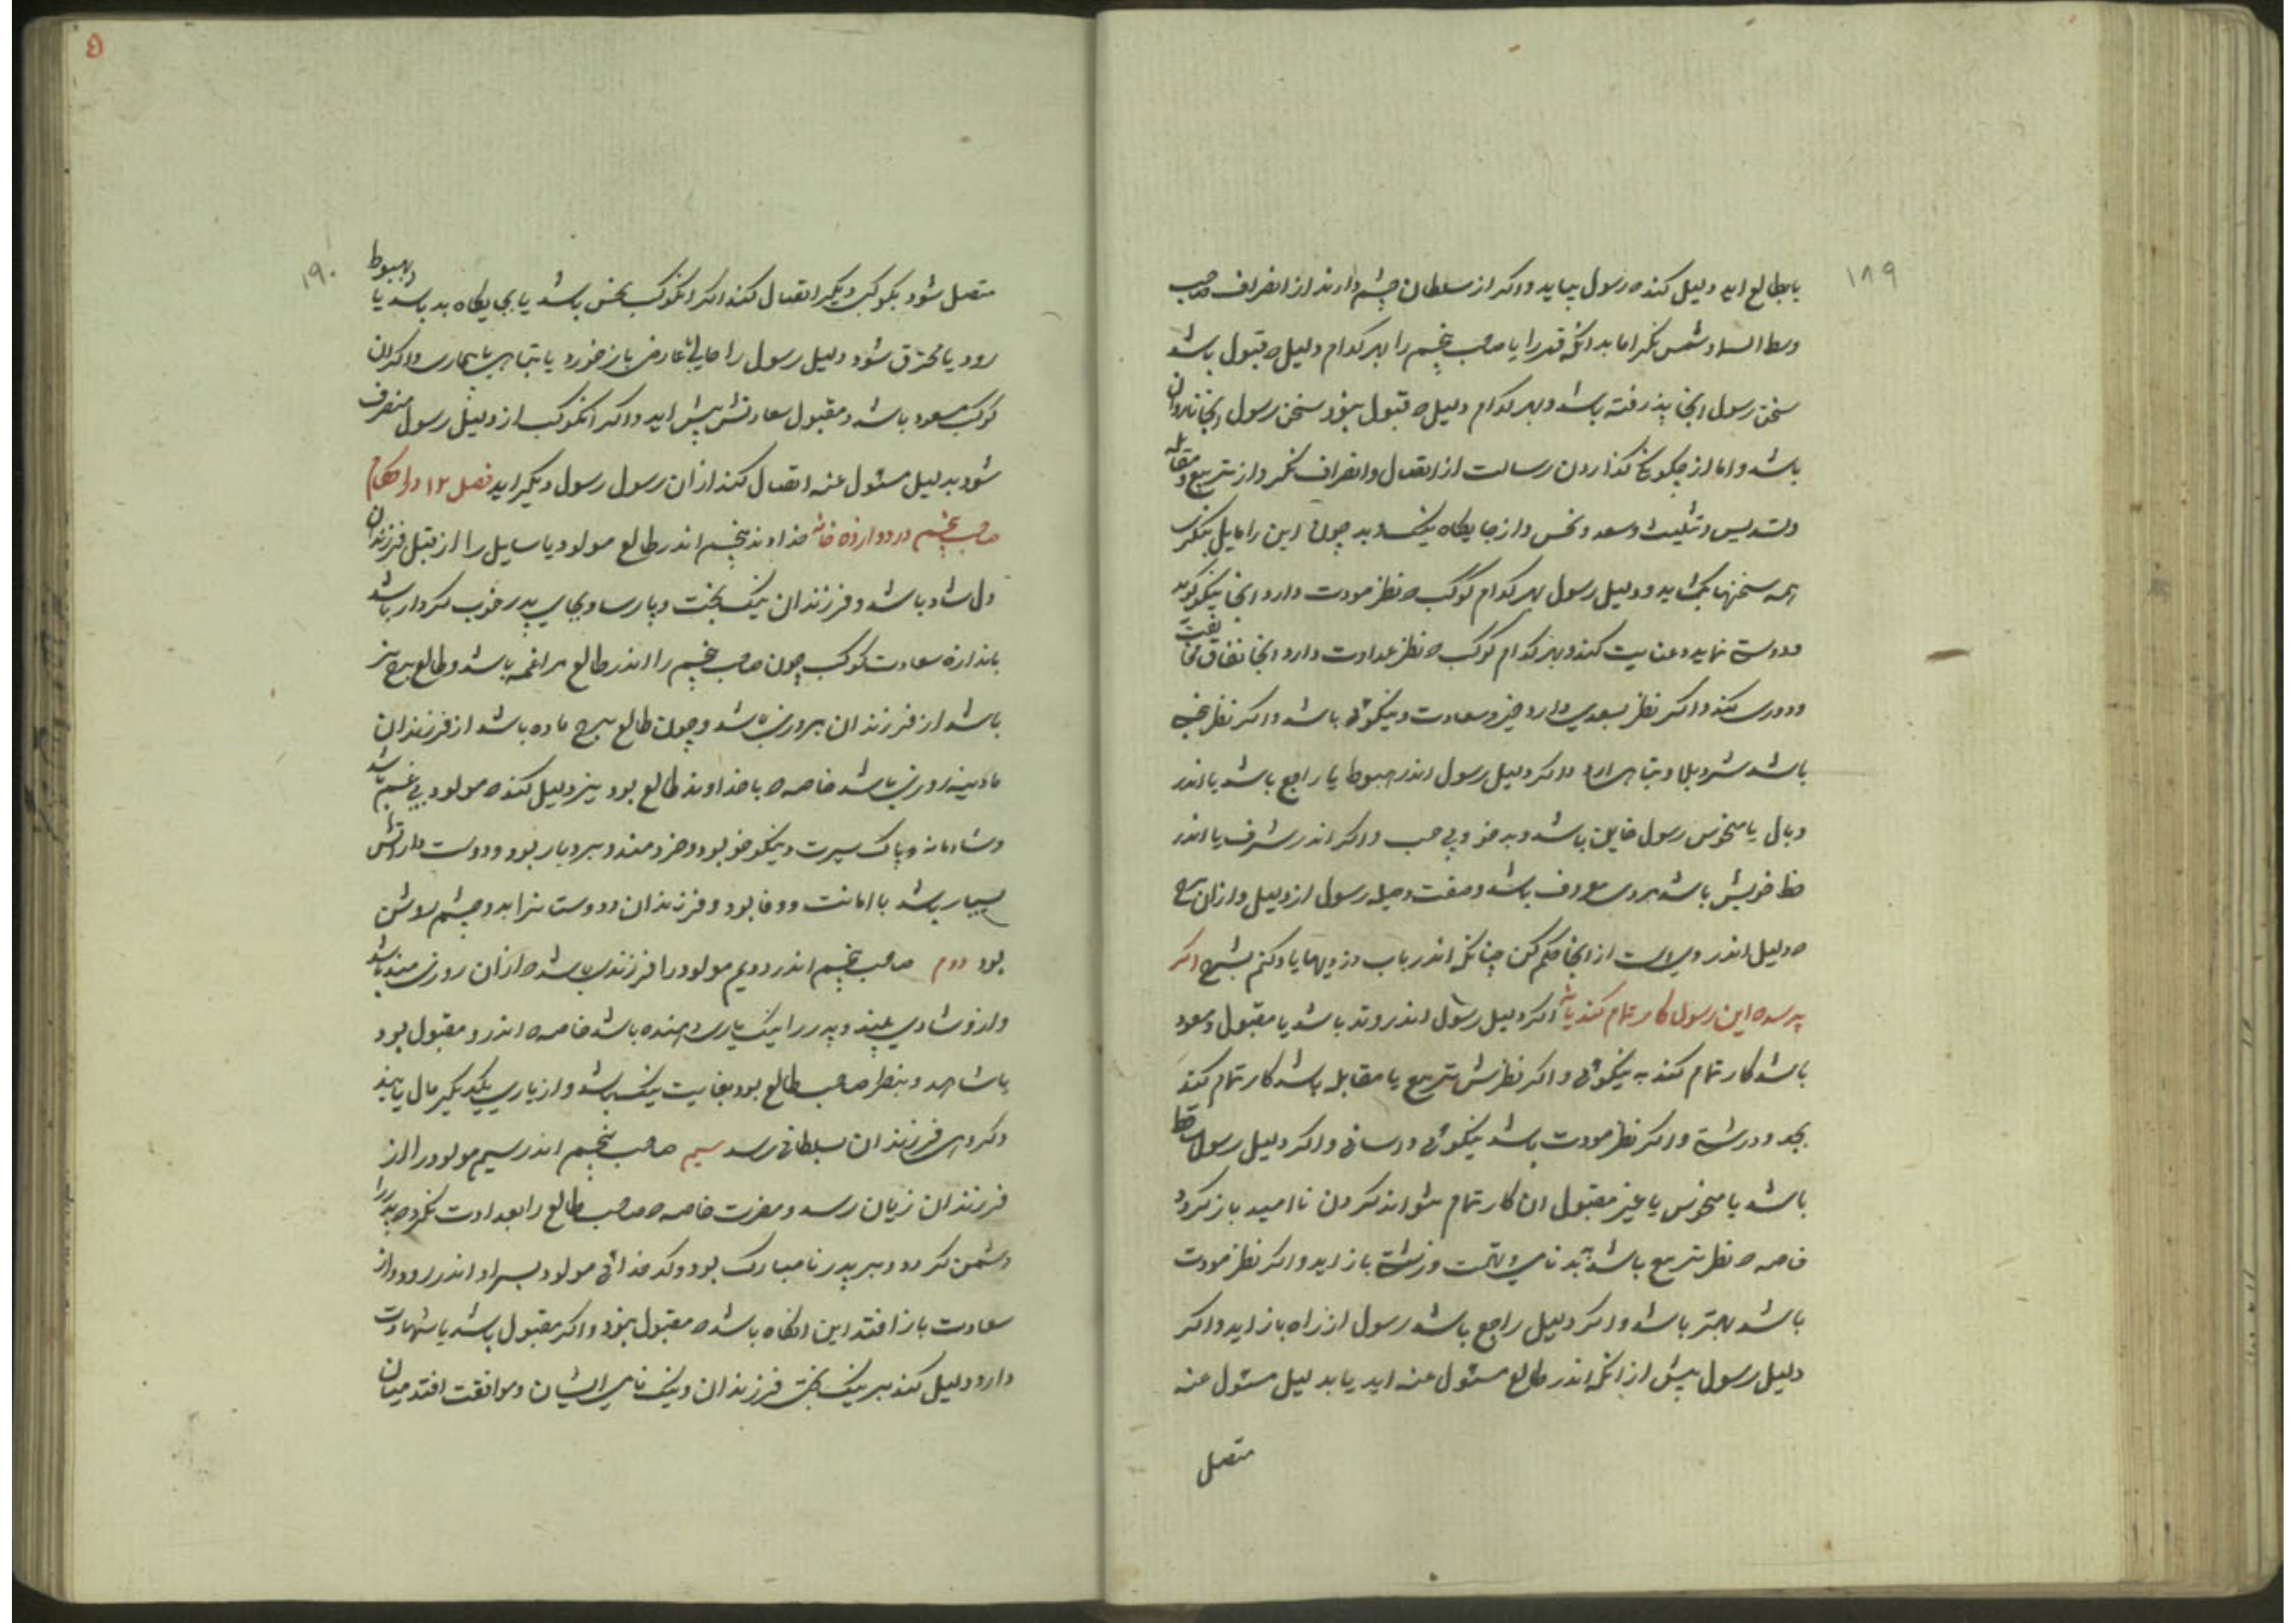 ۱۸۹
یا بطالع اید دلیل کند ه رسول بیاید و اکر از سلطان چشم دارند از انصراف صاحب
وسط السما و شمس نکر اما بدانکه قمر را یا صاحب پنجم را بهر کدام دلیل ه قبول باشد
سخن رسول انجا پذرفته باشد و بهر کدام دلیل ه قبول نبود سخن رسول انجا ناروان
باشد و اما از چکونکی کذاردن رسالت از اتصال و انصراف نکر و از تربیع و مقابله
و تسدیس و تثلیث و سعد و نحس و از جایکاه نیک و بد چون این را مایل بنکری
همه سخنها بکشاید و دلیل رسول بهر کدام کوکب ه نظر مودت دارد انجا نیکو کوید
و دوستی نماید و عنایت کند و بهر کدام کوکب ه نظر عداوت دارد انجا نفاق مخالفت
و دوری کند و اکر نظر بسعدی دارد خیر و سعادت و نیکوئی باشد و اکر نظر بنحس
باشد شر و بلا و تباهی ارد و اکر دلیل رسول اندر هبوط یا راجع باشد یا اندر
وبال یا منحوس رسول خاین باشد و بد خو و بی حسب و اکر اندر شرف یا اندر
حظ خویش باشد مردی معروف باشد و صفت و حیله رسول از دلیل و از ان برج
ه دلیل اندر وی است از انجا حکم کن چنانکه اندر باب دزدیها یاد کنم بشرح اکر
پرسد ه این رسول کار تمام کند یا نه اکر دلیل رسول اندر وتد باشد یا مقبول و مسعود
باشد کار تمام کند به نیکوئی و اکر نظرش تربیع یا مقابله باشد کار تمام کند
بجد و درشتی و اکر نظر مودت باشد بنیکوئی و اسانی و اکر دلیل رسول ساقط
باشد یا منحوس یا غیر مقبول ان کار تمام نتواند کردن نا امید باز کردد
خاصه ه نظر تربیع باشد ببد نامی و تهمت و زشتی باز اید و اکر نظر مودت
باشد بهتر باشد و اکر دلیل راجع باشد رسول از راه باز اید و اکر
دلیل رسول پیش از انکه اندر طالع مسئول عنه اید یا بدلیل مسئول عنه
متصل
۵
۱۹۰
متصل شود بکوکب دیکر اتصال کند اکر انکوکب نحس باشد یا بجایکاه بد باشد یا بهبوط
رود یا محترق شود دلیل رسول را جایی عارض باز خورد یا تباهی یا بیماری و اکر ان
کوکب مسعود باشد و مقبول سعادتش پیش اید و اکر انکوکب از دلیل رسول منصرف
شود بدلیل مسئول عنه اتصال کند از ان رسول رسول دیکر اید فصل ۱۲ در احکام
صاحب پنجم در دوازده خانه خداوند پنجم اندر طالع مولود یا سایل را از قبل فرزندان
دل شاد باشد و فرزندان نیک بخت و پارسا و بجای پدر خوب کردار باشد
باندازه سعادت کوکب چون صاحب پنجم را اندر طالع مراغمه باشد و طالع برج نر
باشد از فرزندان نر روزی باشد و چون طالع برج ماده باشد از فرزندان
مادینه روزی باشد خاصه ه با خداوند طالع بود نیز دلیل کند ه مولود بی غم باشد
و شادمانه و پاک سیرت و نیکو خو بود و خردمند و بردبار بود و دوست دارانش
بسیار باشد با امانت و وفا بود و فرزندان دوست نزاید و چشم روشن
بود دوم صاحب پنجم اندر دویم مولود را فرزندی باشد ه از ان روزی مند باشد
و از وشادی بیند و پدر را نیک یاری دهنده باشد خاصه ه اندر و مقبول بود
یا شاهد و بنظر صاحب طالع بود بغایت نیک باشد و از یاری یکدیکر مال یابند
و کروهی فرزندان بسلطانی رسد سیم صاحب پنجم اندر سیم مولود را از
فرزندان زیان رسد و مضرت خاصه ه صاحب طالع را بعداوت نکرد ه پدر را
دشمن کردد و بر پدر نا مبارک بود و کدخدائی مولود بسر او اندر رود و از
سعادت باز افتد این انکاه باشد ه مقبول نبود و اکر مقبول باشد یا شهادت
دارد دلیل کند بر نیک بختی فرزندان و نیک نامی ایشان و موافقت افتد میان